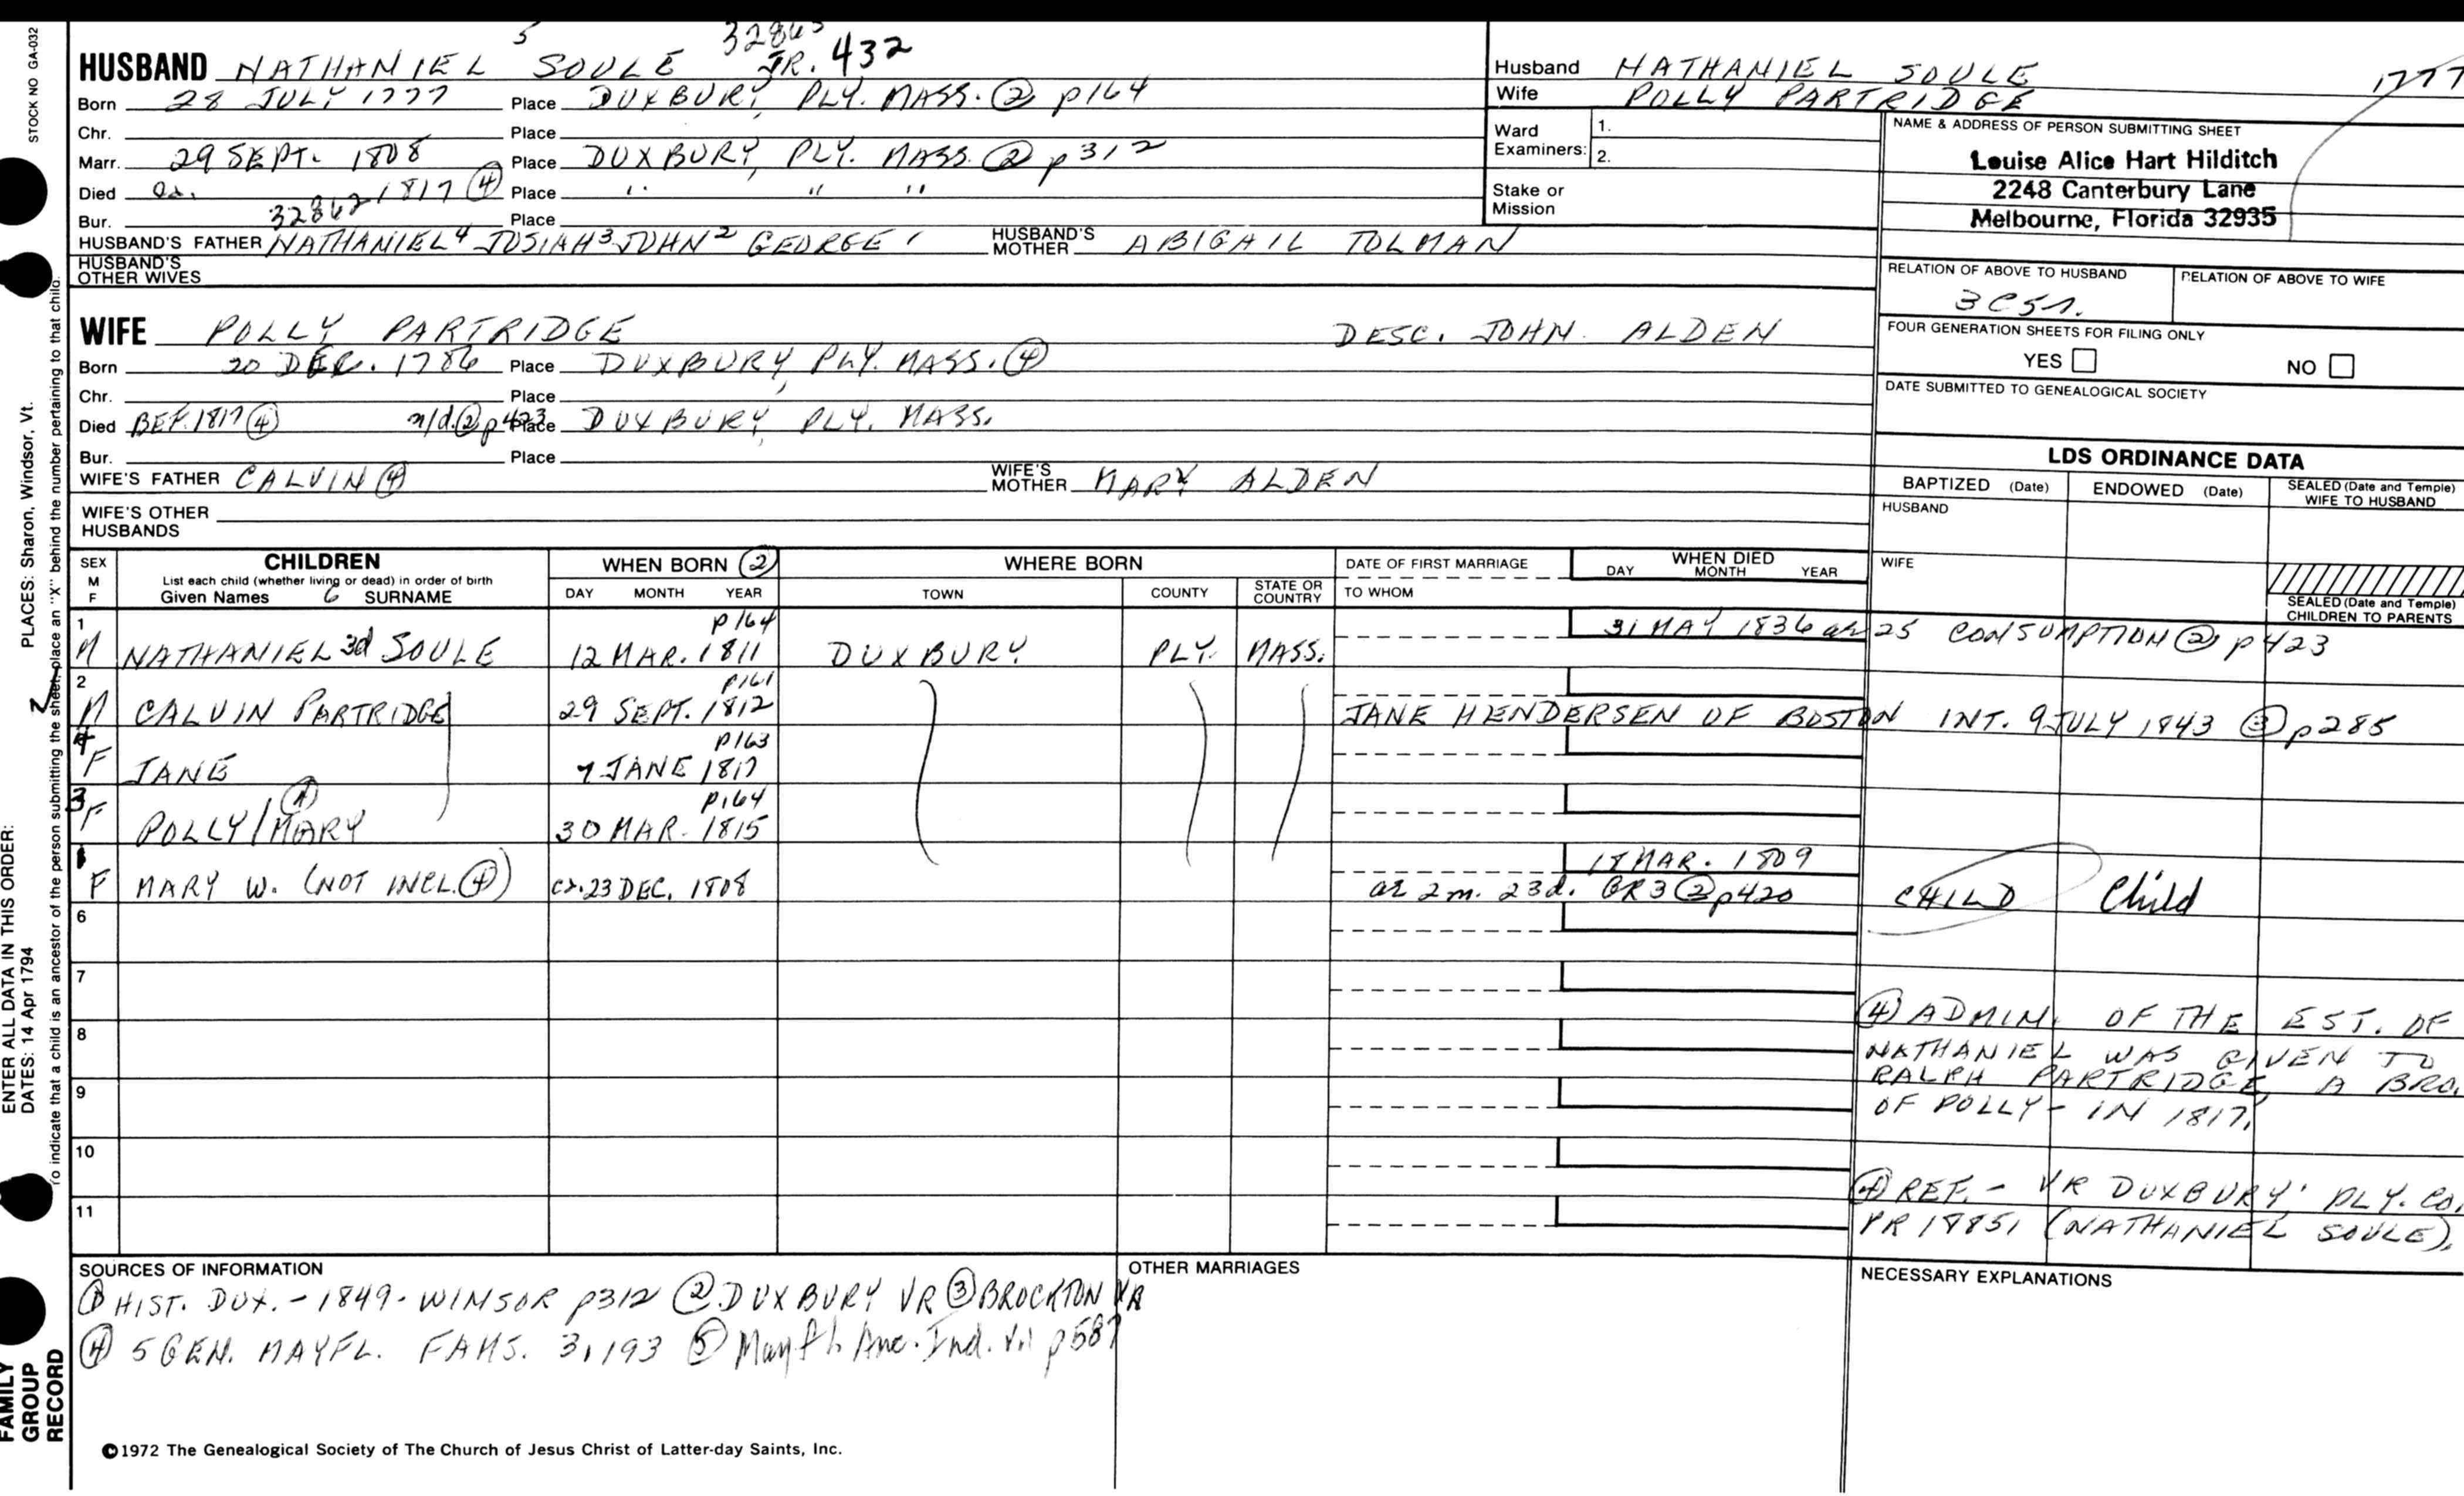 STOCK NO GA-032
32863
HUSBAND NATHANIEL 5 SOULE JR. 432
Born 28 JULY 1777 Place DUXBURY, PLY. MASS. ② p164
Chr. Place
Marr. 29 SEPT. 1808 Place DUXBURY, PLY. MASS. ② p312
Died 1817 ④ Place " " "
Bur. 32862 Place
HUSBAND'S FATHER NATHANIEL 4 JOSIAH 3 JOHN 2 GEORGE 1 HUSBAND'S MOTHER ABIGAIL TOLMAN
HUSBAND'S OTHER WIVES
WIFE POLLY PARTRIDGE DESC. JOHN ALDEN
Born 20 DEC. 1786 Place DUXBURY, PLY. MASS. ④
Chr. Place
Died BEF. 1817 ④ n/d. ② p423 Place DUXBURY, PLY. MASS.
Bur. Place
WIFE'S FATHER CALVIN ④ WIFE'S MOTHER MARY ALDEN
WIFE'S OTHER HUSBANDS
Husband NATHANIEL SOULE 1777
Wife POLLY PARTRIDGE
Ward Examiners: 1.
2.
Stake or Mission
NAME & ADDRESS OF PERSON SUBMITTING SHEET
Louise Alice Hart Hilditch
2248 Canterbury Lane
Melbourne, Florida 32935
RELATION OF ABOVE TO HUSBAND RELATION OF ABOVE TO WIFE
3C5r.
FOUR GENERATION SHEETS FOR FILING ONLY
YES NO
DATE SUBMITTED TO GENEALOGICAL SOCIETY
LDS ORDINANCE DATA
BAPTIZED (Date) ENDOWED (Date) SEALED (Date and Temple) WIFE TO HUSBAND
HUSBAND
WIFE
SEALED (Date and Temple) CHILDREN TO PARENTS
SEX M F CHILDREN WHEN BORN ② WHERE BORN DATE OF FIRST MARRIAGE WHEN DIED
List each child (whether living or dead) in order of birth
Given Names 6 SURNAME DAY MONTH YEAR TOWN COUNTY STATE OR COUNTRY TO WHOM DAY MONTH YEAR
1 p164
M NATHANIEL 3d SOULE 12 MAR. 1811 DUXBURY PLY. MASS. 31 MAY 1836 ae 25 CONSUMPTION ② p423
2 p161
M CALVIN PARTRIDGE 29 SEPT. 1812 JANE HENDERSEN OF BOSTON INT. 9 JULY 1843 ③ p285
4 p163
F JANE 7 JANE 1817
3 p164
F POLLY/MARY ④ 30 MAR. 1815
1 18 MAR. 1809
F MARY W. (NOT INCL. ④) ca. 23 DEC. 1808 ae 2m. 23d. GR3 ② p420 CHILD Child
6
7
8
9
10
11
④ ADMIN. OF THE EST. OF
NATHANIEL WAS GIVEN TO
RALPH PARTRIDGE, A BRO.
OF POLLY - IN 1817.
④ REF. - VR DUXBURY; PLY. CO.
PR 18851 (NATHANIEL SOULE).
SOURCES OF INFORMATION
① HIST. DUX. - 1849 - WINSOR p312 ② DUXBURY VR ③ BROCKTON VR
④ 5 GEN. MAYFL. FAMS. 3, 193 ⑤ Mayfl. Anc. Ind. p587
OTHER MARRIAGES
NECESSARY EXPLANATIONS
©1972 The Genealogical Society of The Church of Jesus Christ of Latter-day Saints, Inc.
PLACES: Sharon, Windsor, Vt.
To indicate that a child is an ancestor of the person submitting the sheet, place an "X" behind the number pertaining to that child.
ENTER ALL DATA IN THIS ORDER:
DATES: 14 Apr 1794
FAMILY
GROUP
RECORD